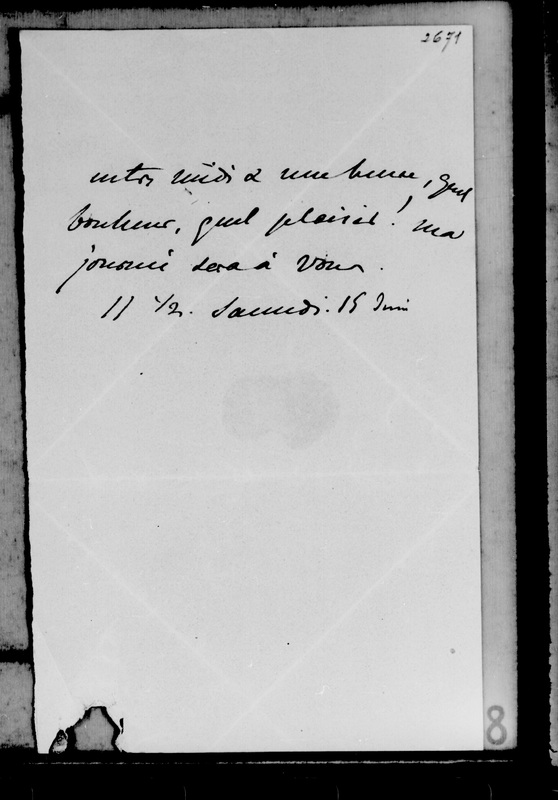 2671
entre midi & une heure, quel
bonheur, quel plaisir! ma
journée sera à vous.
11 1/2. Samedi. 15 Juin
8